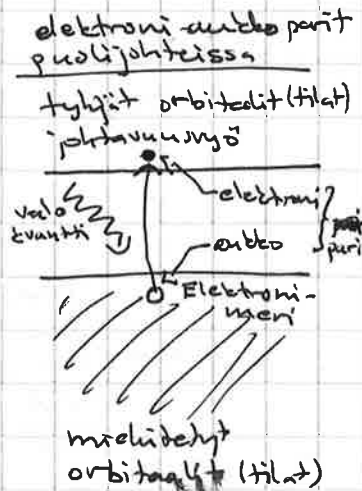 elektroni-aukko parit
puolijohteissa
tyhjät orbitalit (tilat)
johtavuusvyö
elektroni
valo
kvantti
pari
aukko
Elektroni-
meri
miehitetyt
orbitaalit (tilat)